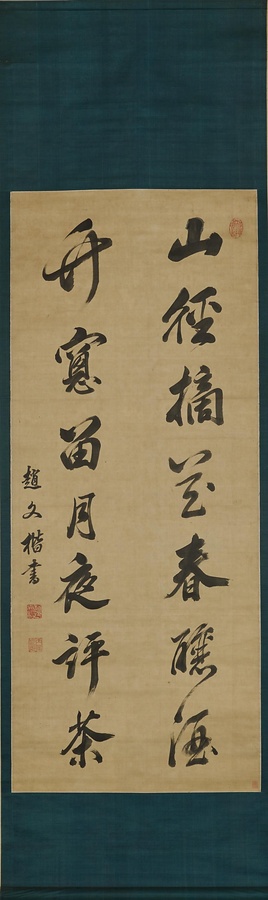 山徑摘花春釀酒
竹窗留月夜評茶
趙文楷書